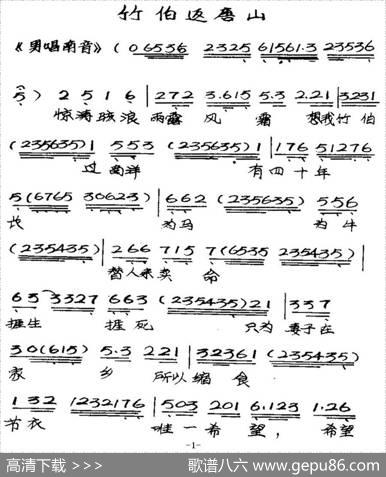 竹伯返唐山
《男唱南音》( 0 6536 2325 61561.3 23536
5 ) 2 5 1 6 | 272 3.615 5.3 2.21 | 3231
惊涛骇浪 雨露 风 霜 想我竹伯
(235635) 1 553 (235635) 1 | 176 51276
过南洋 有四十年
5 (6765 30623) | 662 (235635) 556
长 为马 为牛
(235435) | 266 715 7 (6535 235435) |
替人来卖 命
65 3327 663 (235435) 21 | 337
捱生 捱死 只为 妻子在
30 (615) 5.3 221 | 32361 (235435)
家 乡 所以缩食
132 1232176 | 503 201 6.123 1.26
节衣 唯一希望, 希望
-1-
高清下载 >>>
歌谱八六 www.gepu86.com